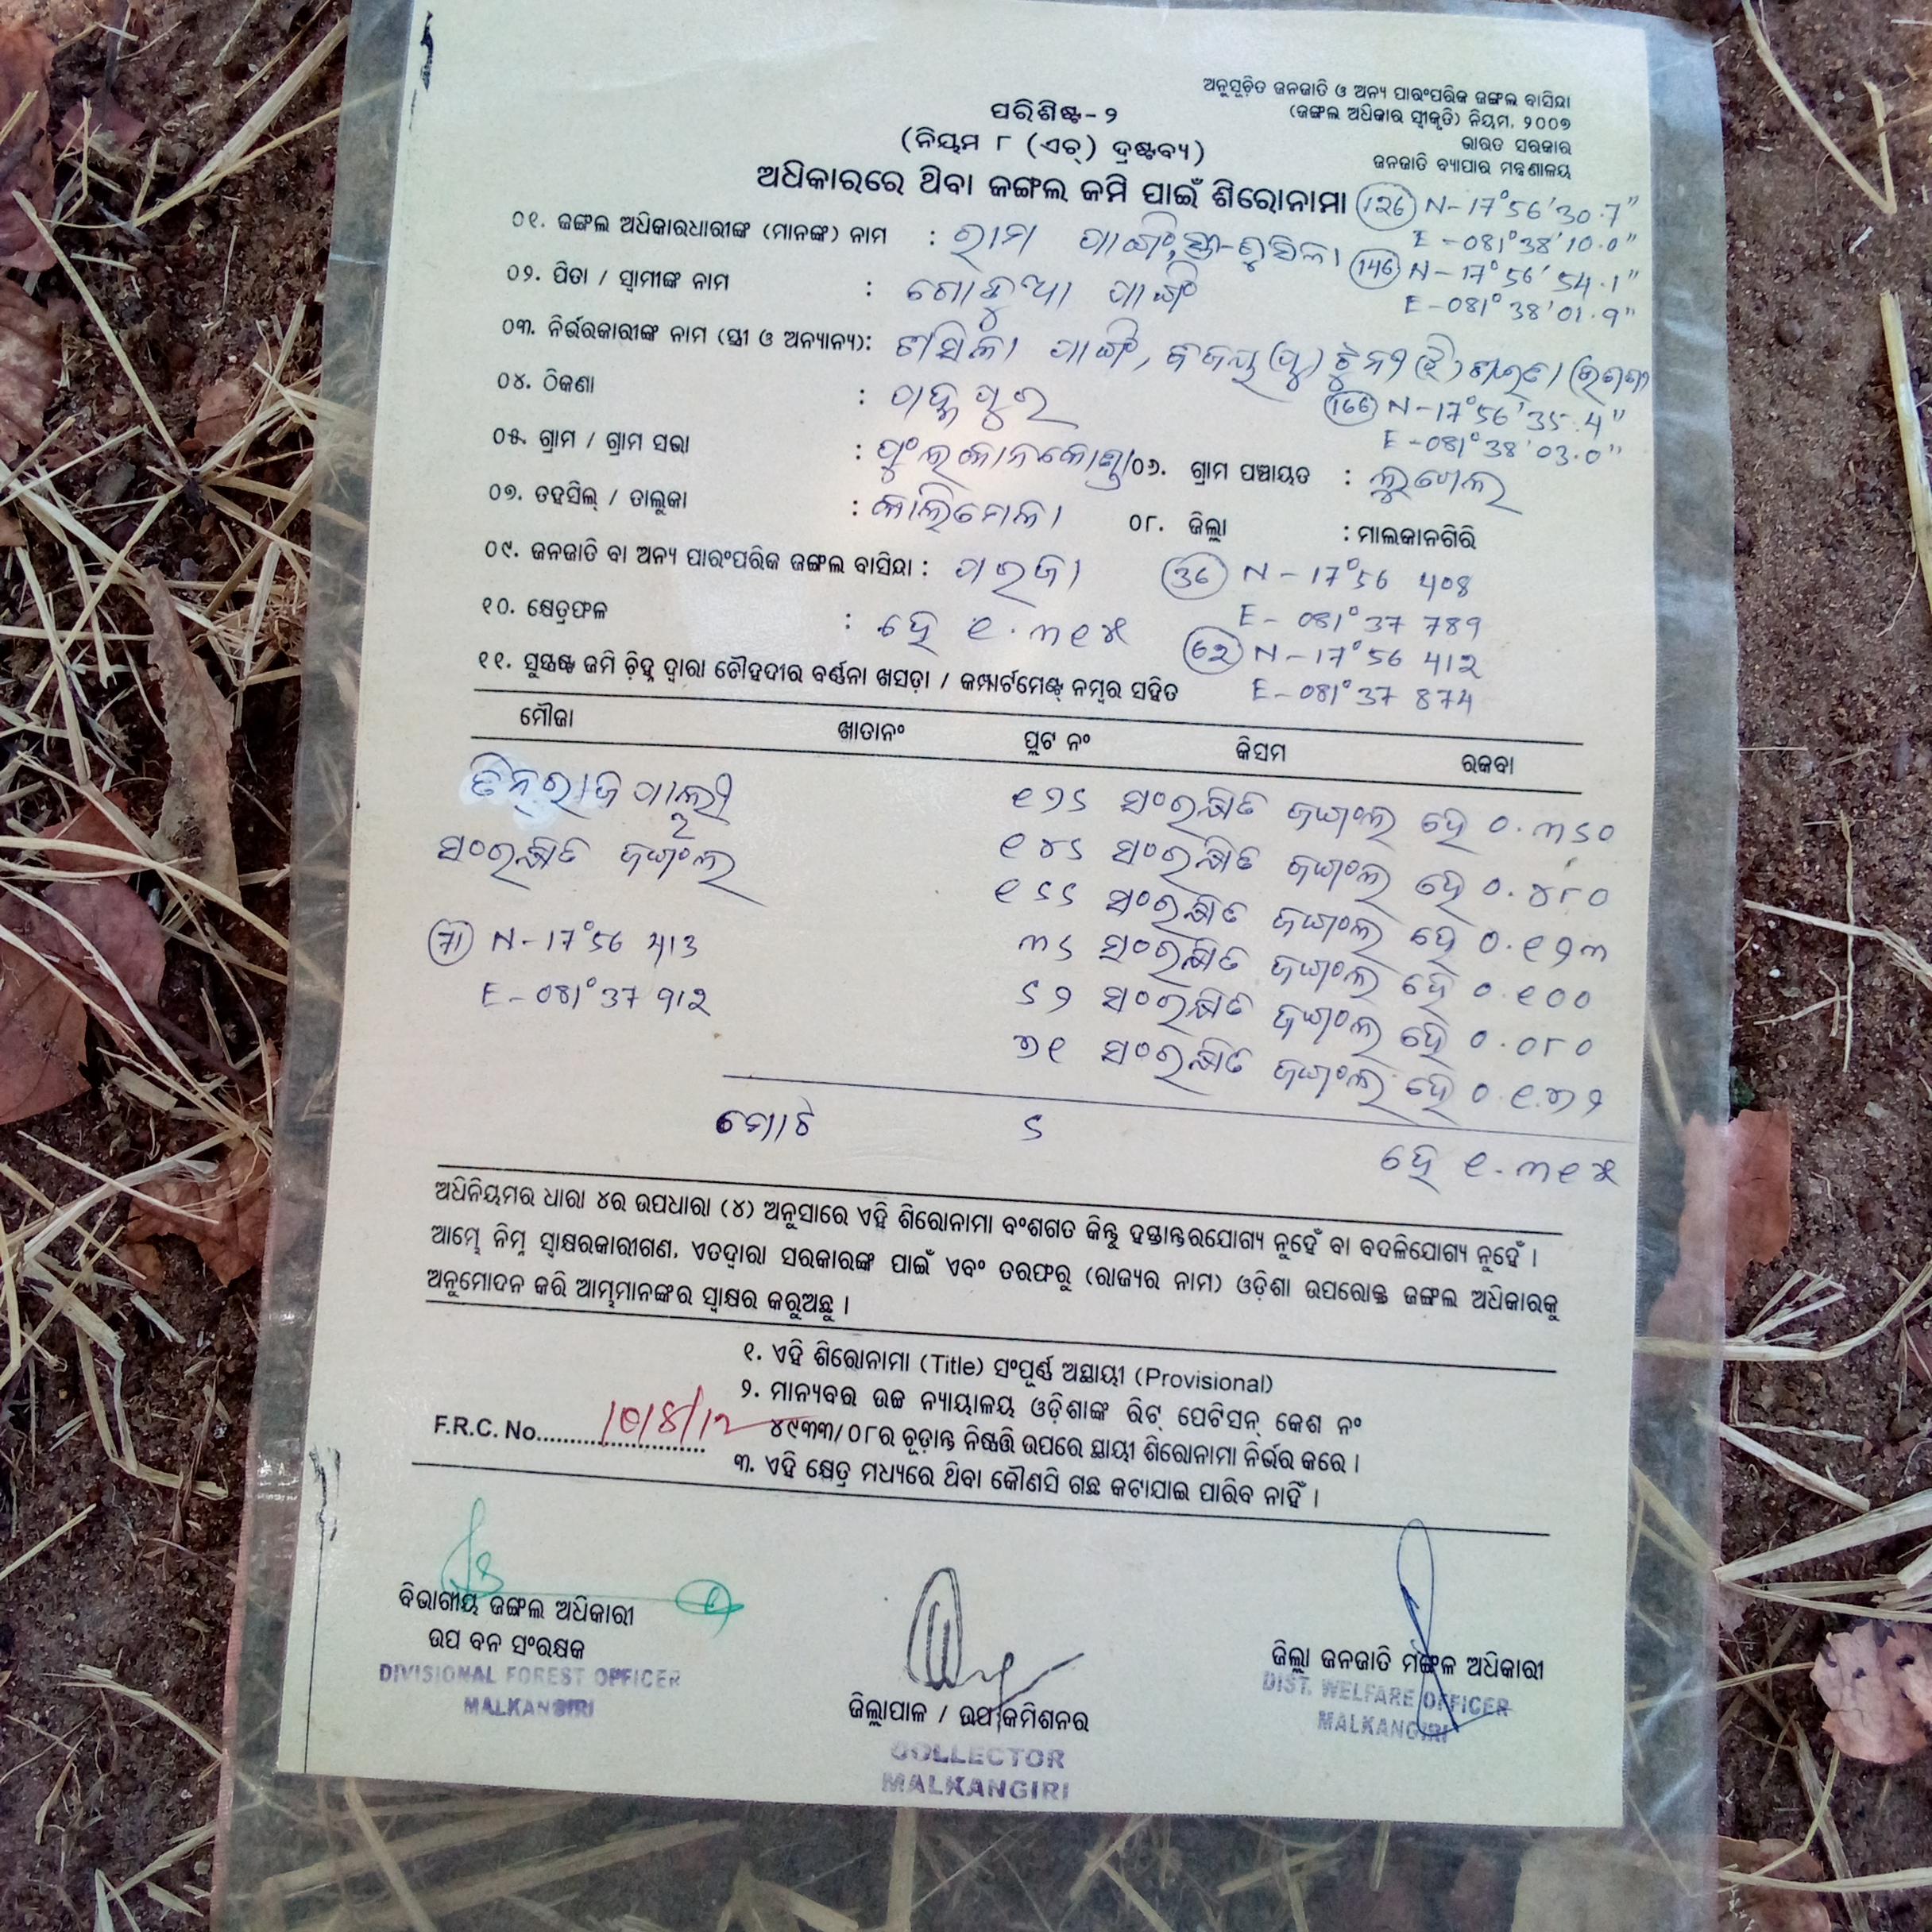 ଅନୁସୂଚିତ ଜନଜାତି ଓ ଅନ୍ୟ ପାରଂପରିକ ଜଙ୍ଗଲ ବାସିନ୍ଦା
(ଜଙ୍ଗଲ ଅଧିକାର ସ୍ୱୀକୃତି) ନିୟମ, ୨୦୦୭
ଭାରତ ସରକାର
ଜନଜାତି ବ୍ୟାପାର ମନ୍ତ୍ରଣାଳୟ
ପରିଶିଷ୍ଟ - ୨
(ନିୟମ ୮ (ଏଚ୍) ଦ୍ରଷ୍ଟବ୍ୟ)
ଅଧିକାରରେ ଥିବା ଜଙ୍ଗଲ ଜମି ପାଇଁ ଶିରୋନାମା
(126) N-17°56'30.7"
E-081°38'10.0"
୦୧. ଜଙ୍ଗଲ ଅଧିକାରଧାରୀଙ୍କ (ମାନଙ୍କ) ନାମ : ରାମ ପାଙ୍ଗି,
(146) N-17°56'54.1"
E-081°38'01.9"
୦୨. ପିତା / ସ୍ୱାମୀଙ୍କ ନାମ : ପାଙ୍ଗି
୦୩. ନିର୍ଭରକାରୀଙ୍କ ନାମ (ସ୍ତ୍ରୀ ଓ ଅନ୍ୟାନ୍ୟ): ପାଙ୍ଗି,
୦୪. ଠିକଣା : ପଦ୍ମପୁର
(166) N-17°56'35.4"
E-081°38'03.0"
୦୫. ଗ୍ରାମ / ଗ୍ରାମ ସଭା :
୦୬. ଗ୍ରାମ ପଞ୍ଚାୟତ :
୦୭. ତହସିଲ୍ / ତାଲୁକା : କାଲିମେଳା
୦୮. ଜିଲ୍ଲା : ମାଲକାନଗିରି
୦୯. ଜନଜାତି ବା ଅନ୍ୟ ପାରଂପରିକ ଜଙ୍ଗଲ ବାସିନ୍ଦା : ପରଜା
(36) N-17°56 408
E-081°37 789
୧୦. କ୍ଷେତ୍ରଫଳ : ହେ ୧.୩୧୫
(62) N-17°56 412
E-081°37 874
୧୧. ସୁସ୍ପଷ୍ଟ ଜମି ଚିହ୍ନ ଦ୍ୱାରା ଚୌହଦୀର ବର୍ଣ୍ଣନା ଖସଡ଼ା / କମ୍ପାର୍ଟମେଣ୍ଟ ନମ୍ବର ସହିତ
ମୌଜା ଖାତାନଂ ପ୍ଲଟ ନଂ କିସମ ରକବା
୧୨୬ ସଂରକ୍ଷିତ ଜଙ୍ଗଲ ହେ ୦.୩୬୦
ସଂରକ୍ଷିତ ଜଙ୍ଗଲ ୧୪୬ ସଂରକ୍ଷିତ ଜଙ୍ଗଲ ହେ ୦.୪୮୦
୧୬୬ ସଂରକ୍ଷିତ ଜଙ୍ଗଲ ହେ ୦.୧୨୩
(71) N-17°56 413 ୩୬ ସଂରକ୍ଷିତ ଜଙ୍ଗଲ ହେ ୦.୧୦୦
E-081°37 912 ୬୨ ସଂରକ୍ଷିତ ଜଙ୍ଗଲ ହେ ୦.୦୮୦
୭୧ ସଂରକ୍ଷିତ ଜଙ୍ଗଲ ହେ ୦.୧୭୨
ମୋଟ ୬ ହେ ୧.୩୧୫
ଅଧିନିୟମର ଧାରା ୪ର ଉପଧାରା (୪) ଅନୁସାରେ ଏହି ଶିରୋନାମା ବଂଶଗତ କିନ୍ତୁ ହସ୍ତାନ୍ତରଯୋଗ୍ୟ ନୁହେଁ ବା ବଦଳିଯୋଗ୍ୟ ନୁହେଁ ।
ଆମ୍ଭେ ନିମ୍ନ ସ୍ୱାକ୍ଷରକାରୀଗଣ, ଏତଦ୍ୱାରା ସରକାରଙ୍କ ପାଇଁ ଏବଂ ତରଫରୁ (ରାଜ୍ୟର ନାମ) ଓଡ଼ିଶା ଉପରୋକ୍ତ ଜଙ୍ଗଲ ଅଧିକାରକୁ
ଅନୁମୋଦନ କରି ଆମ୍ଭମାନଙ୍କର ସ୍ୱାକ୍ଷର କରୁଅଛୁ ।
୧. ଏହି ଶିରୋନାମା (Title) ସଂପୂର୍ଣ୍ଣ ଅସ୍ଥାୟୀ (Provisional)
୨. ମାନ୍ୟବର ଉଚ୍ଚ ନ୍ୟାୟାଳୟ ଓଡ଼ିଶାଙ୍କ ରିଟ୍ ପେଟିସନ୍ କେଶ ନଂ
୪୯୩୩/୦୮ର ଚୂଡ଼ାନ୍ତ ନିଷ୍ପତ୍ତି ଉପରେ ସ୍ଥାୟୀ ଶିରୋନାମା ନିର୍ଭର କରେ ।
F.R.C. No..........................
୩. ଏହି କ୍ଷେତ୍ର ମଧ୍ୟରେ ଥିବା କୌଣସି ଗଛ କଟାଯାଇ ପାରିବ ନାହିଁ ।
ବିଭାଗୀୟ ଜଙ୍ଗଲ ଅଧିକାରୀ
ଉପ ବନ ସଂରକ୍ଷକ
DIVISIONAL FOREST OFFICER
MALKANGIRI
ଜିଲ୍ଲାପାଳ / ଉପ କମିଶନର
COLLECTOR
MALKANGIRI
ଜିଲ୍ଲା ଜନଜାତି ମଙ୍ଗଳ ଅଧିକାରୀ
DIST. WELFARE OFFICER
MALKANGIRI